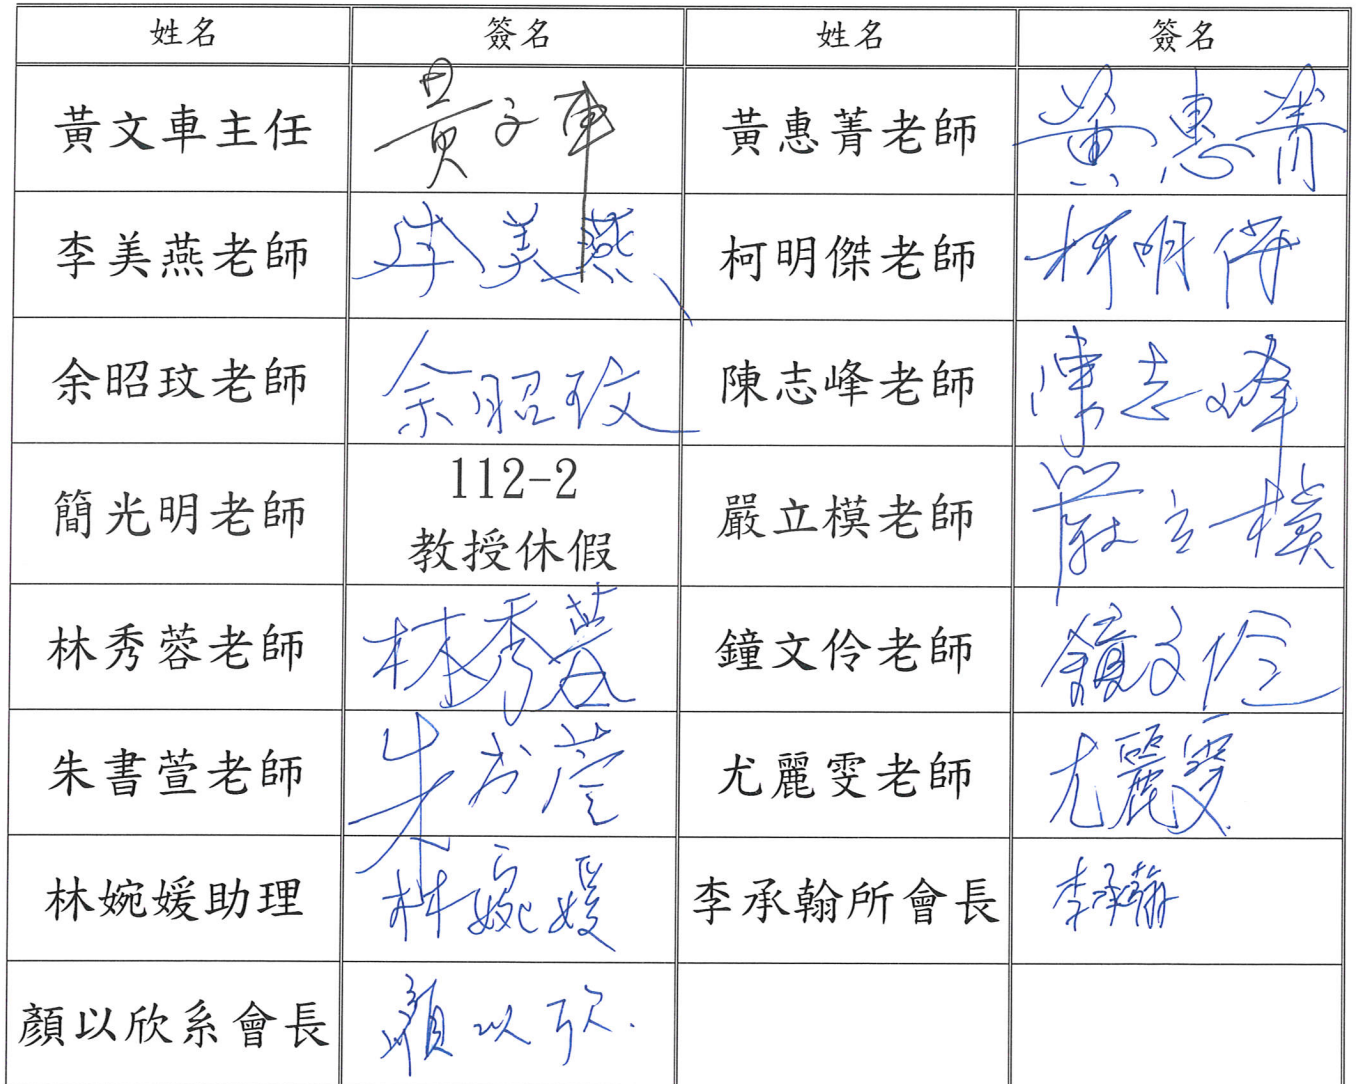 姓名 簽名 姓名 簽名
黃文車主任 黃文車 黃惠菁老師 黃惠菁
李美燕老師 李美燕 柯明傑老師 柯明傑
余昭玟老師 余昭玟 陳志峰老師 陳志峰
簡光明老師 112-2 教授休假 嚴立模老師 嚴立模
林秀蓉老師 林秀蓉 鐘文伶老師 鐘文伶
朱書萱老師 朱书萱 尤麗雯老師 尤麗雯
林婉媛助理 林婉媛 李承翰所會長 李承翰
顏以欣系會長 顏以欣.